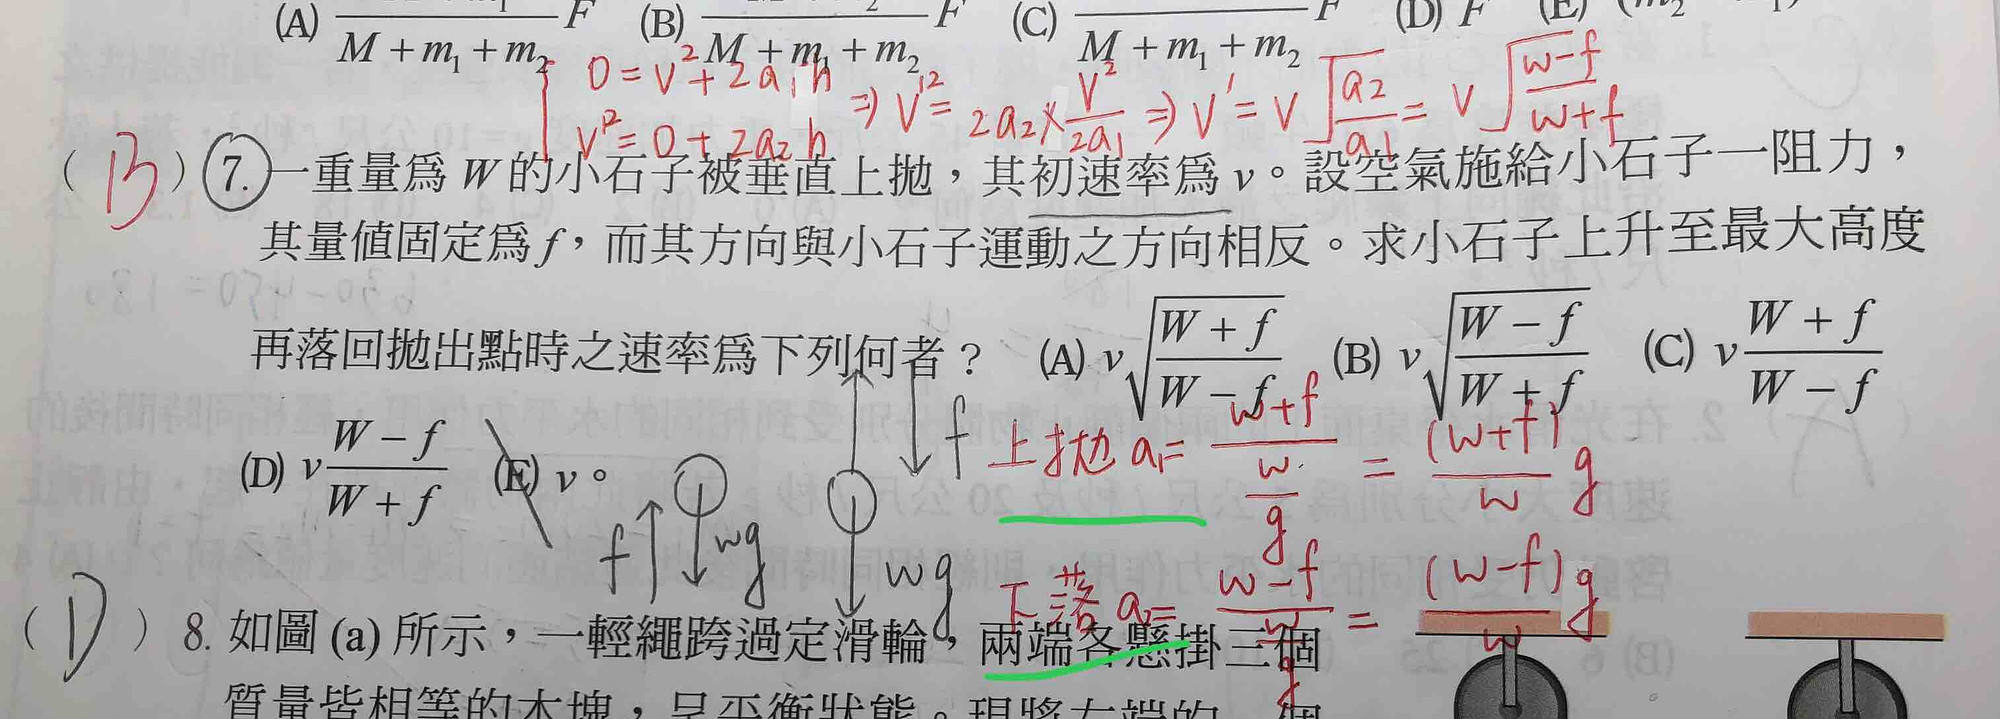 (A) M + m₁ + m₂ F (B) M + m₁ + m₂ F (C) M + m₁ + m₂ F (D) F (E)
0 = v² + 2a₁h
v'² = 0 + 2a₂h
⇒ v'² = 2a₂ × v²/2a₁ ⇒ v' = v√(a₂/a₁) = v√(w-f/w+f)
( B ) 7. 一重量爲 W 的小石子被垂直上拋，其初速率爲 v。設空氣施給小石子一阻力，
其量値固定爲 f，而其方向與小石子運動之方向相反。求小石子上升至最大高度
再落回拋出點時之速率爲下列何者？ (A) v√(W + f/W − f) (B) v√(W − f/W + f) (C) v W + f/W − f
(D) v W − f/W + f (E) v。
f wg
f wg
上拋 a₁ = w+f/(w/g) = (w+f)/w g
下落 a₂ = w-f/(w/g) = (w-f)/w g
( D ) 8. 如圖 (a) 所示，一輕繩跨過定滑輪，兩端各懸掛三個
質量皆相等的木塊，呈平衡狀態。現將右端的一個